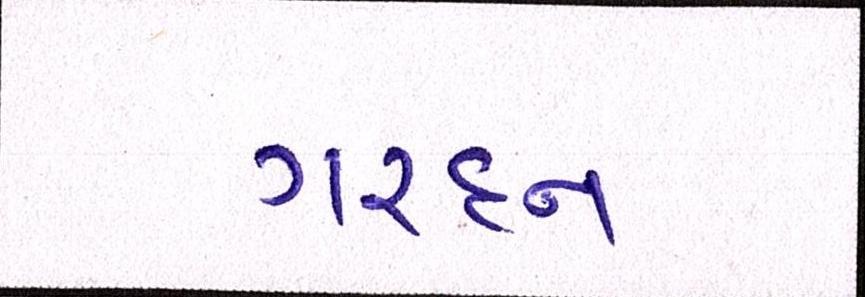 ગરદન